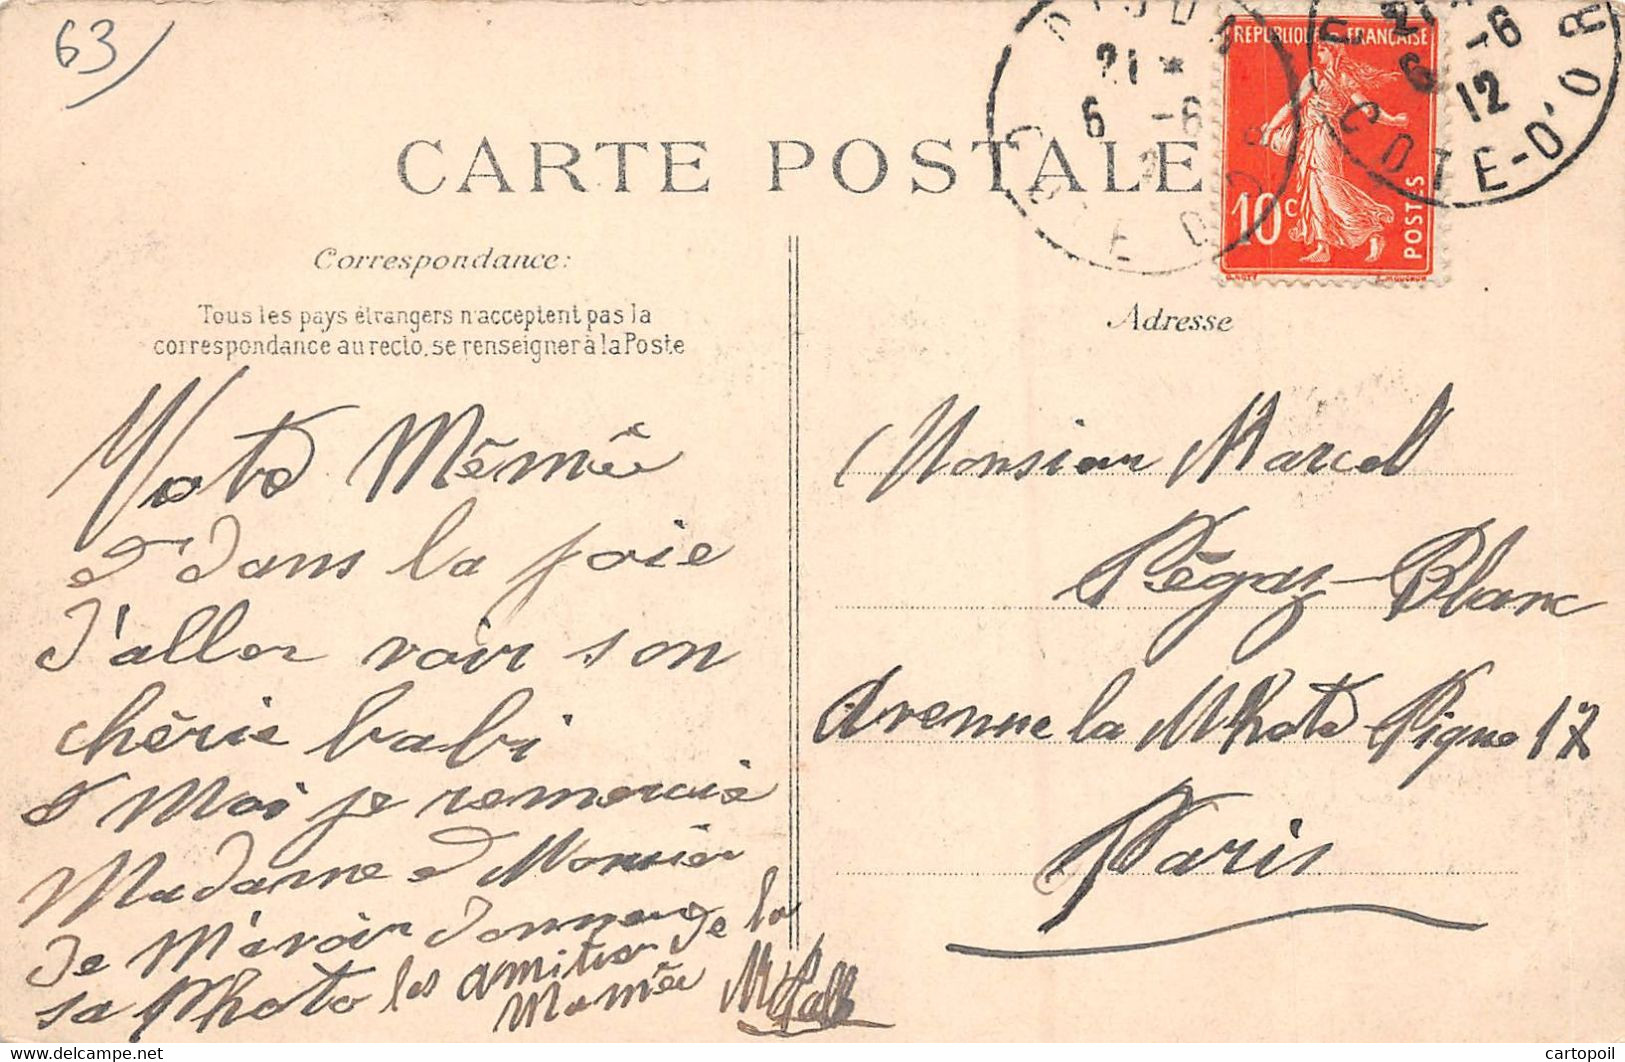 63
CARTE POSTALE
RÉPUBLIQUE FRANÇAISE
10c
POSTES
21 *
6 -6
6 -6
12
COTE-D'OR
Correspondance:
Tous les pays étrangers n'acceptent pas la
correspondance au recto, se renseigner à la Poste
Adresse
Vote Mémée
é dans la joie
d'aller voir son
chérie babi
é Moi je remercie
Madame é Monsier
de M'avoir donner
sa Photo les amities de la
Memée
Monsieur Marcel
Pégaz-Blanc
Avenue la Mhote Pique 17
Paris
cartopoil